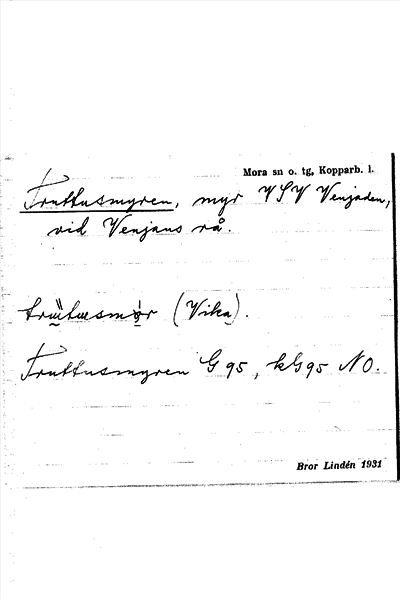 Mora sn o. tg, Kopparb. l.
Truttusmyren, myr VSV Venjaden,
vid Venjans rå.
(Vika).
Truttusmyren G 95, kG95 NO.
Bror Lindén 1931